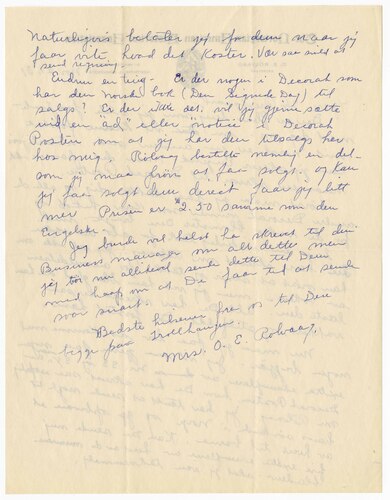 Naturligvis betaler jeg for dem naar jeg
faar vite hvad det koster. Vær saa snild at
send regning.
Endnu en ting - Er der nogen i Decorah som
har den norske bok (Den Signede Dag) til
salgs? Er der ikke det, vil jeg gjerne sætte
ind en "ad" eller "notice" i Decorah
Posten om at jeg har dem tilsalgs her
hos mig. Rolvaag bestilte nemlig en del
som jeg maa prøve at faa solgt. og kan
jeg faa solgt dem direct faar jeg litt
mer. Prisen er $2.50 samme som den
Engelske.
Jeg burde vel helst ha skrevet til din
Business manager om alt dette men
jeg tar mig allikevel sende dette til Dem
med haap om at De faar tid at sende
svar snart.
Bedste hilsener fra os til Dem
begge fra Trollhaugen
Mrs. O. E. Rolvaag.